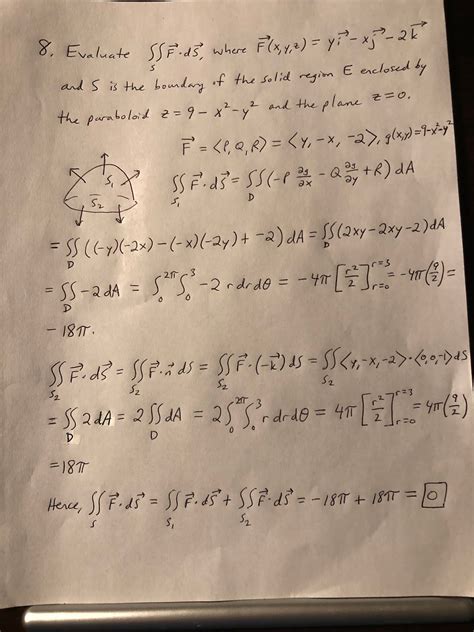 8. Evaluate ∬_S F⃗·dS⃗, where F⃗(x,y,z) = yi⃗ - xj⃗ - 2k⃗
and S is the boundary of the solid region E enclosed by
the paraboloid z = 9 - x² - y² and the plane z = 0.
F⃗ = ⟨P, Q, R⟩ = ⟨y, -x, -2⟩, g(x,y) = 9-x²-y²
S₁
S₂
∬_{S₁} F⃗·dS⃗ = ∬_D (-P ∂g/∂x - Q ∂g/∂y + R) dA
= ∬_D ((-y)(-2x) - (-x)(-2y) + -2) dA = ∬_D (2xy - 2xy - 2) dA
= ∬_D -2 dA = ∫₀^{2π} ∫₀³ -2 r dr dθ = -4π [r²/2]_{r=0}^{r=3} = -4π(9/2) =
-18π.
∬_{S₂} F⃗·dS⃗ = ∬_{S₂} F⃗·n⃗ dS = ∬_{S₂} F⃗·(-k⃗) dS = ∬_{S₂} ⟨y, -x, -2⟩·⟨0,0,-1⟩ dS
= ∬_D 2 dA = 2 ∬_D dA = 2 ∫₀^{2π} ∫₀³ r dr dθ = 4π [r²/2]_{r=0}^{r=3} = 4π(9/2)
= 18π
Hence, ∬_S F⃗·dS⃗ = ∬_{S₁} F⃗·dS⃗ + ∬_{S₂} F⃗·dS⃗ = -18π + 18π = 0